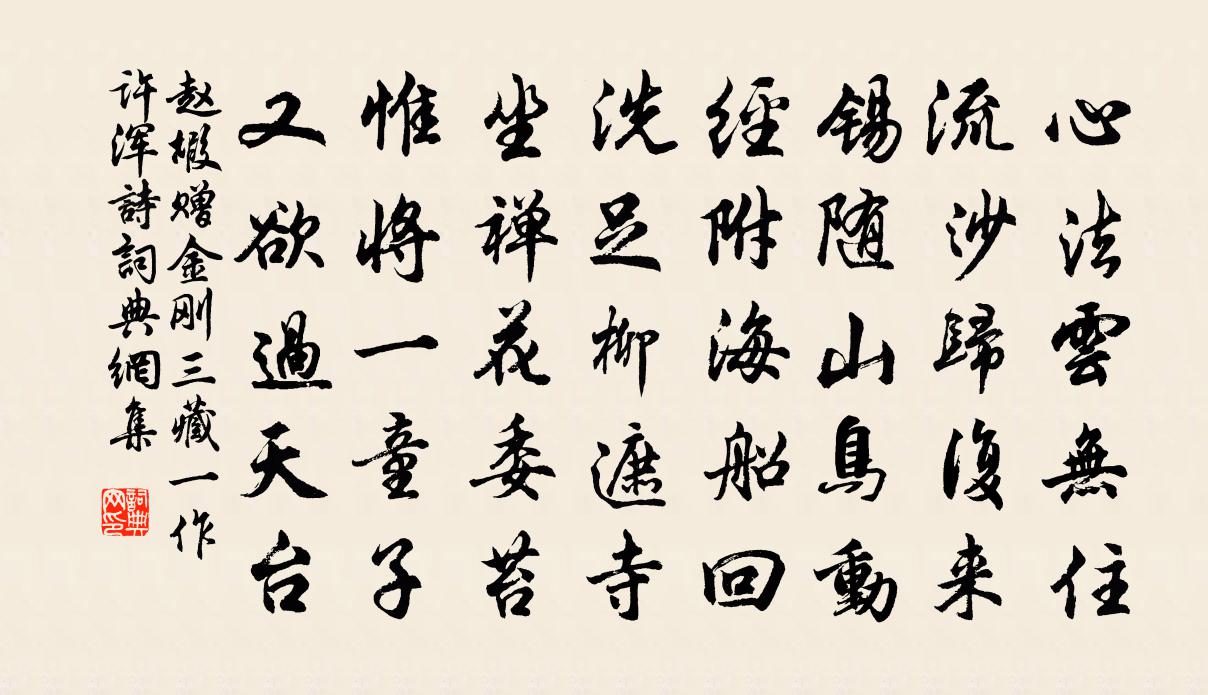 心法雲無住
流沙歸復来
錫随山鳥動
經附海船回
洗足柳遮寺
坐禅花委苔
惟將一童子
又欲過天台
赵嘏赠金刚三藏一作
许浑詩詞典網集
詞典网印